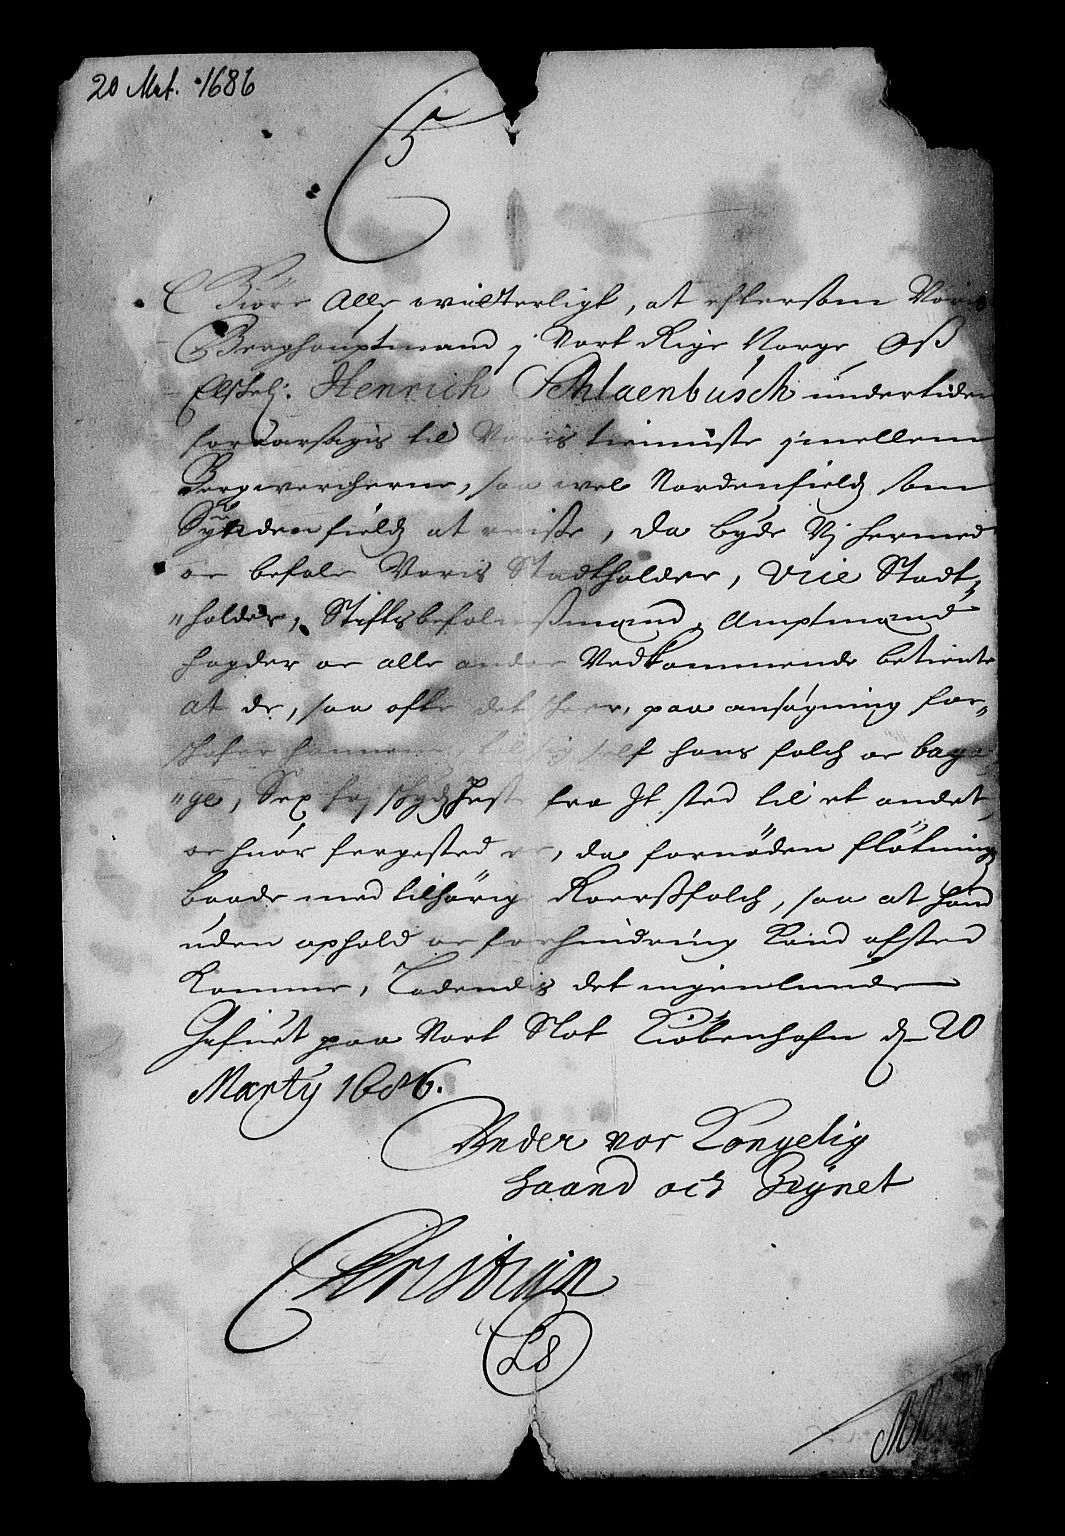 20 Mrt. 1686
C5
Giøre Alle witterligt, at eftersom Voris
Berghauptmand j Vort Rige Norge Oß
Elskel: Henrich Schlaenbusch undertiden
foraarsagis til Voris tienniste jmellem
Bergwercherne, saa wel Nordenfields som
Syndenfields at reise, da byde Vj hermed
oc befale Voris Stadtholder, Vice Stadt-
"holder, Stiftsbefalingsmand, Amptmænd
Fogder oc alle andre Vedkommende betiente
at de, saa ofte det skeer, paa ansøgning for-
skafer hannem til sig self hans folch oc baga-
"ge, Sex frj skyds Hest fra It sted til et andet,
oc huor fergested er, da fornøden fløtnings
baade med tilhørig Roersfolch, saa at hand
uden ophold oc forhindring kand afsted
komme, Ladendis det ingenlunde
Gifuet paa Vort Slot Kiøbenhafn d. 20
Marty 1686.
Under vor Kongelig
Haand och Zignet
Christian
LS